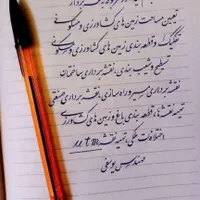 تعیین مساحت زمین های کشاورزی و مسکونی
تفکیک و قطعه بندی زمین های کشاورزی و مسکونی
تسطیح و شیب بندی، نقشه برداری ساختمان
نقشه برداری مسیر و راه سازی، نقشه برداری صنعتی
تهیه نقشه ها، قطعه بندی باغ و زمین های کشاورزی
اختلافات ملکی، تهیه نقشه utm
مهندس یوسفی